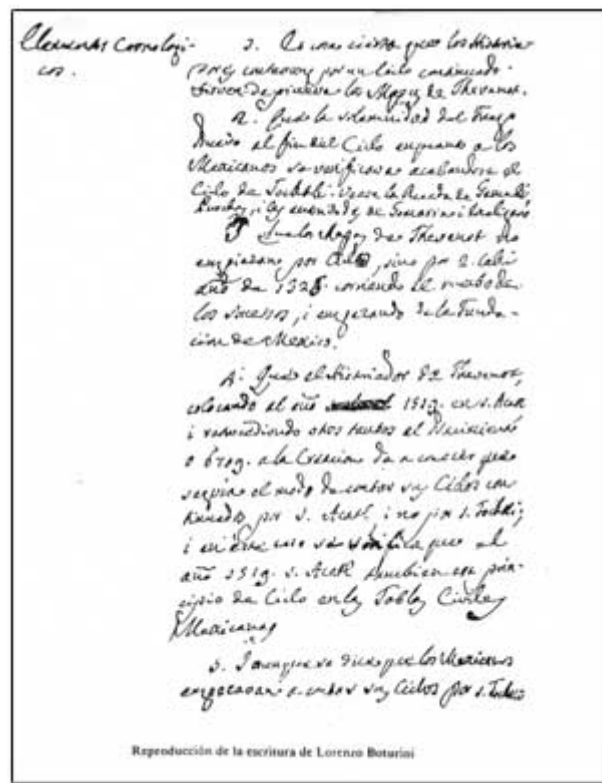 Elementos Cronologi-
cos.
Es cosa cierta que los Historia-
por un Ciclo continuado
sirven de prueva los Mapas de Thevenot.
2. Que la solemnidad del Fuego
Nuevo al fin del Ciclo a los
Mexicanos se verificava acabandose el
Ciclo de Tochtli. Vease la Rueda de Gemelli
de i
3 los Mapas de Thevenot no
empiezan por sino por 2. Calli
año de 132 corriendo el de
los sucessos, i empezando de la Funda-
cion de Mexico.
4. Que el Historiador de Thevenot,
colocando el año 1519. en 1. Acatl
i otros tantos al
o 6709. a la Creacion da a conocer que
seguia el modo de contar sus Ciclos con
por 1. Acatl, i no por 1. Tochtli,
i en este caso se verifica que el
año 1519. 1. Acatl tambien era prin-
cipio de Ciclo en las Tablas Civiles
Mexicanas
5. I aunque se dice que los Mexicanos
empezavan a contar sus Ciclos por 1. Tochtli
Reproducción de la escritura de Lorenzo Boturini